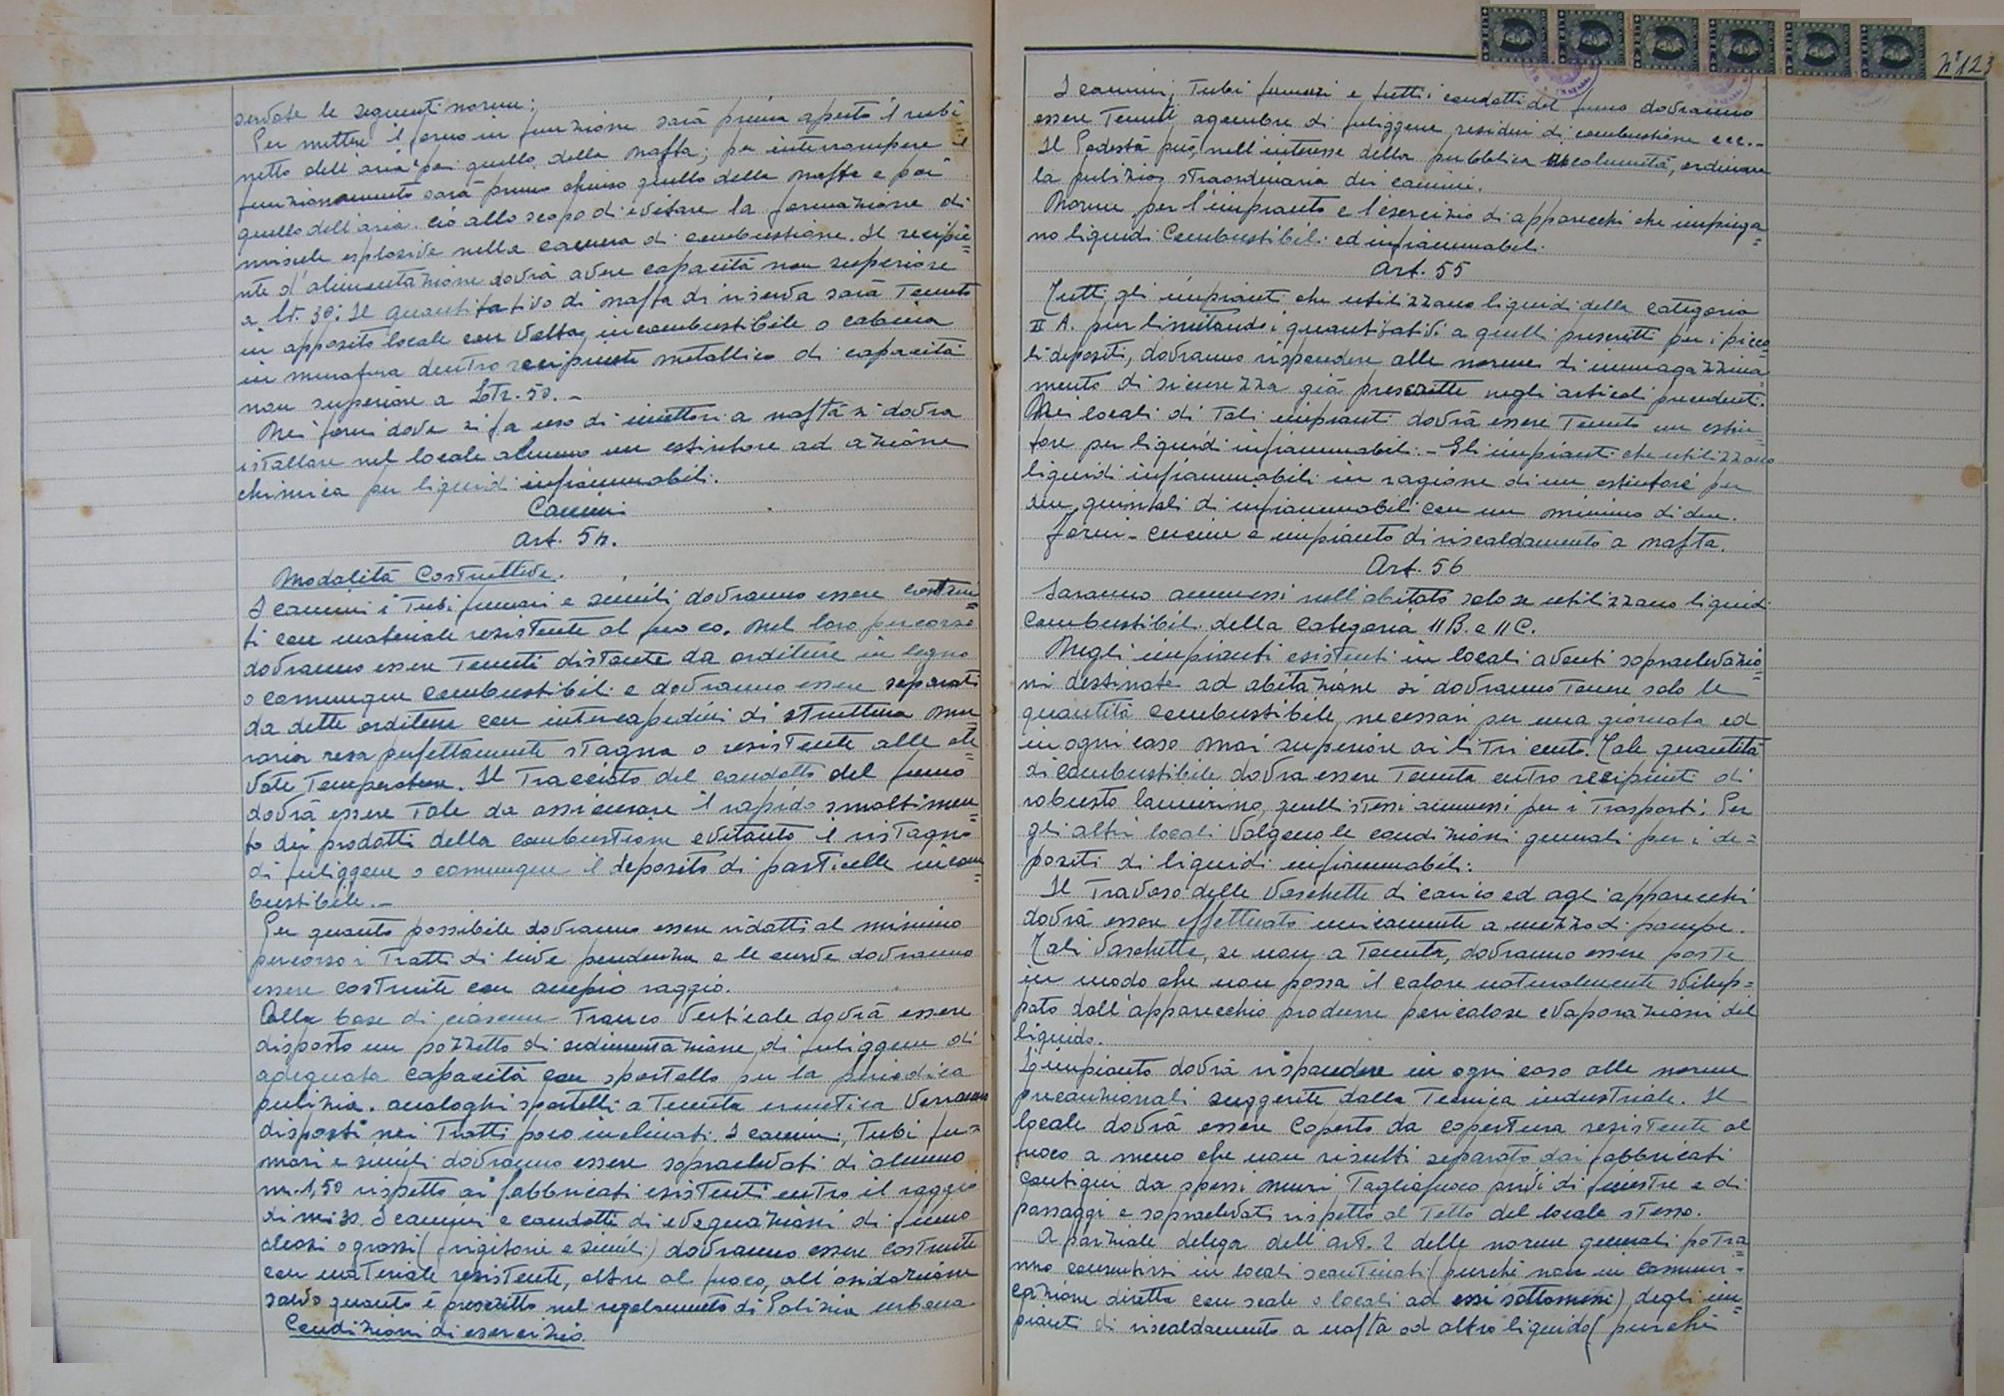 servate le seguenti norme:
Per mettere il forno in funzione sarà prima aperto il rubi
netto dell'aria poi quello della nafta; per interrompere il
funzionamento sarà prima chiuso quello della nafta e poi
quello dell'aria. ciò allo scopo di evitare la formazione di
miscele esplosive nella camera di combustione. Il recipie=
nte d'alimentazione dovrà avere capacità non superiore
a lt. 30. Il quantitativo di nafta di riserva sarà tenuto
in apposito locale con volta incombustibile o cabina
in muratura dentro recipiente metallico di capacità
non superiore a Ltr. 50. -
Nei forni dove si fa uso di iniettori a nafta si dovrà
istallare nel locale almeno un estintore ad azione
chimica per liquidi infiammabili.
Camini
Art. 54.
Modalità Costruttive.
I camini i tubi fumari e simili dovranno essere costrui=
ti con materiale resistente al fuoco. Nel loro percorso
dovranno essere tenuti distante da orditure in legno
o comunque combustibili e dovranno essere separati
da dette orditure con intercapedini di struttura mu=
raria resa perfettamente stagna o resistente alle ele=
vate temperature. Il tracciato del condotto del fumo
dovrà essere tale da assicurare il rapido smaltimen=
to dei prodotti della combustione evitando il ristagno
di fuliggine o comunque il deposito di particelle incom=
bustibile. -
Per quanto possibile dovranno essere ridotti al minimo
percorso i tratti di lieve pendenza e le curve dovranno
essere costruite con ampio raggio.
Alla base di ciascun tronco verticale dovrà essere
disposto un pozzetto di sedimentazione di fuliggine di
adeguata capacità con sportello per la periodica
pulizia. analoghi sportelli a tenuta ermetica verranno
disposti nei tratti poco inclinati. I camini, tubi fu=
mari e simili dovranno essere sopraelevati di almeno
m. 1,50 rispetto ai fabbricati esistenti entro il raggio
di m 30. I camini e condotti di evaquazioni di fumo
oleosi o grassi (frigitorie e simili) dovranno essere costruite
con materiale resistente, oltre al fuoco, all'osidazione
salvo quanto è prescritto nel regolamento di Polizia urbana
Condizioni di esercizio
N° 123
I camini, tubi fumari e tutti i condotti del fumo dovranno
essere tenuti sgombre di fuliggene residui di combustione ecc..
Il Podestà può, nell'interesse della pubblica incolumità, ordinare
la pulizia straordinaria dei camini.
Norme per l'impianto e l'esercizio di apparecchi che impiega=
no liquidi Combustibili ed infiammabili.
Art. 55
Tutti gli impianti che utilizzano liquidi della categoria
II A. pur limitando i quantitativi a quelli prescritti per i picco=
li depositi, dovranno rispondere alle norme di immagazzina=
mento di sicurezza già prescritte negli articoli precedenti.
Nei locali di tali impianti dovrà essere tenuto un estin=
tore per liquidi infiammabili. - Gli impianti che utilizzano
liquidi infiammabili in ragione di un estintore per
quintali di infiammabili con un minimo di due.
Forni - cucine e impianto di riscaldamento a nafta.
Art. 56
Saranno ammessi nell'abitato solo se utilizzano liquidi
Combustibili della categoria II B. e II C.
Negli impianti esistenti in locali aventi sopraelevazio=
ni destinate ad abitazione si dovranno tenere solo le
quantità combustibile necessari per una giornata ed
in ogni caso mai superiore ai litri cento. Tale quantità
di combustibile dovrà essere tenuta entro recipienti di
robusto lamierino, quelli stessi ammessi per i trasporti. Per
gli altri locali valgono le condizioni generali per i de=
positi di liquidi infiammabili.
Il travaso delle vaschette di carico ed agli apparecchi
dovrà essere effettuato unicamente a mezzo di pompe.
Tali vaschette, se non a tenuta, dovranno essere poste
in modo che non possa il calore naturalmente svilup=
pato dall'apparecchio produrre pericolose evaporazioni del
liquido.
L'impianto dovrà rispondere in ogni caso alle norme
precauzionali suggerite dalla tecnica industriale. Il
locale dovrà essere coperto da copertura resistente al
fuoco a meno che non risulti separato dai fabbricati
contigui da spessi muri tagliafuoco privi di finestre e di
passaggi e sopraelevati rispetto al tetto del locale stesso.
A parziale delega dell'art. 2 delle norme generali potra=
nno consentirsi in locali scantinati (purché non in comuni=
cazione diretta con scale o locali ad essi sottomessi) degli im=
pianti di riscaldamento a nafta od altro liquido (purché